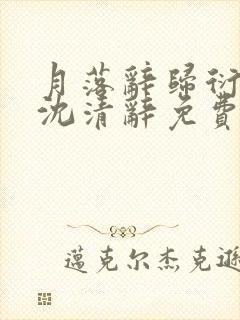 月落辭歸衍
沈清辭免費
邁克尔杰克遜